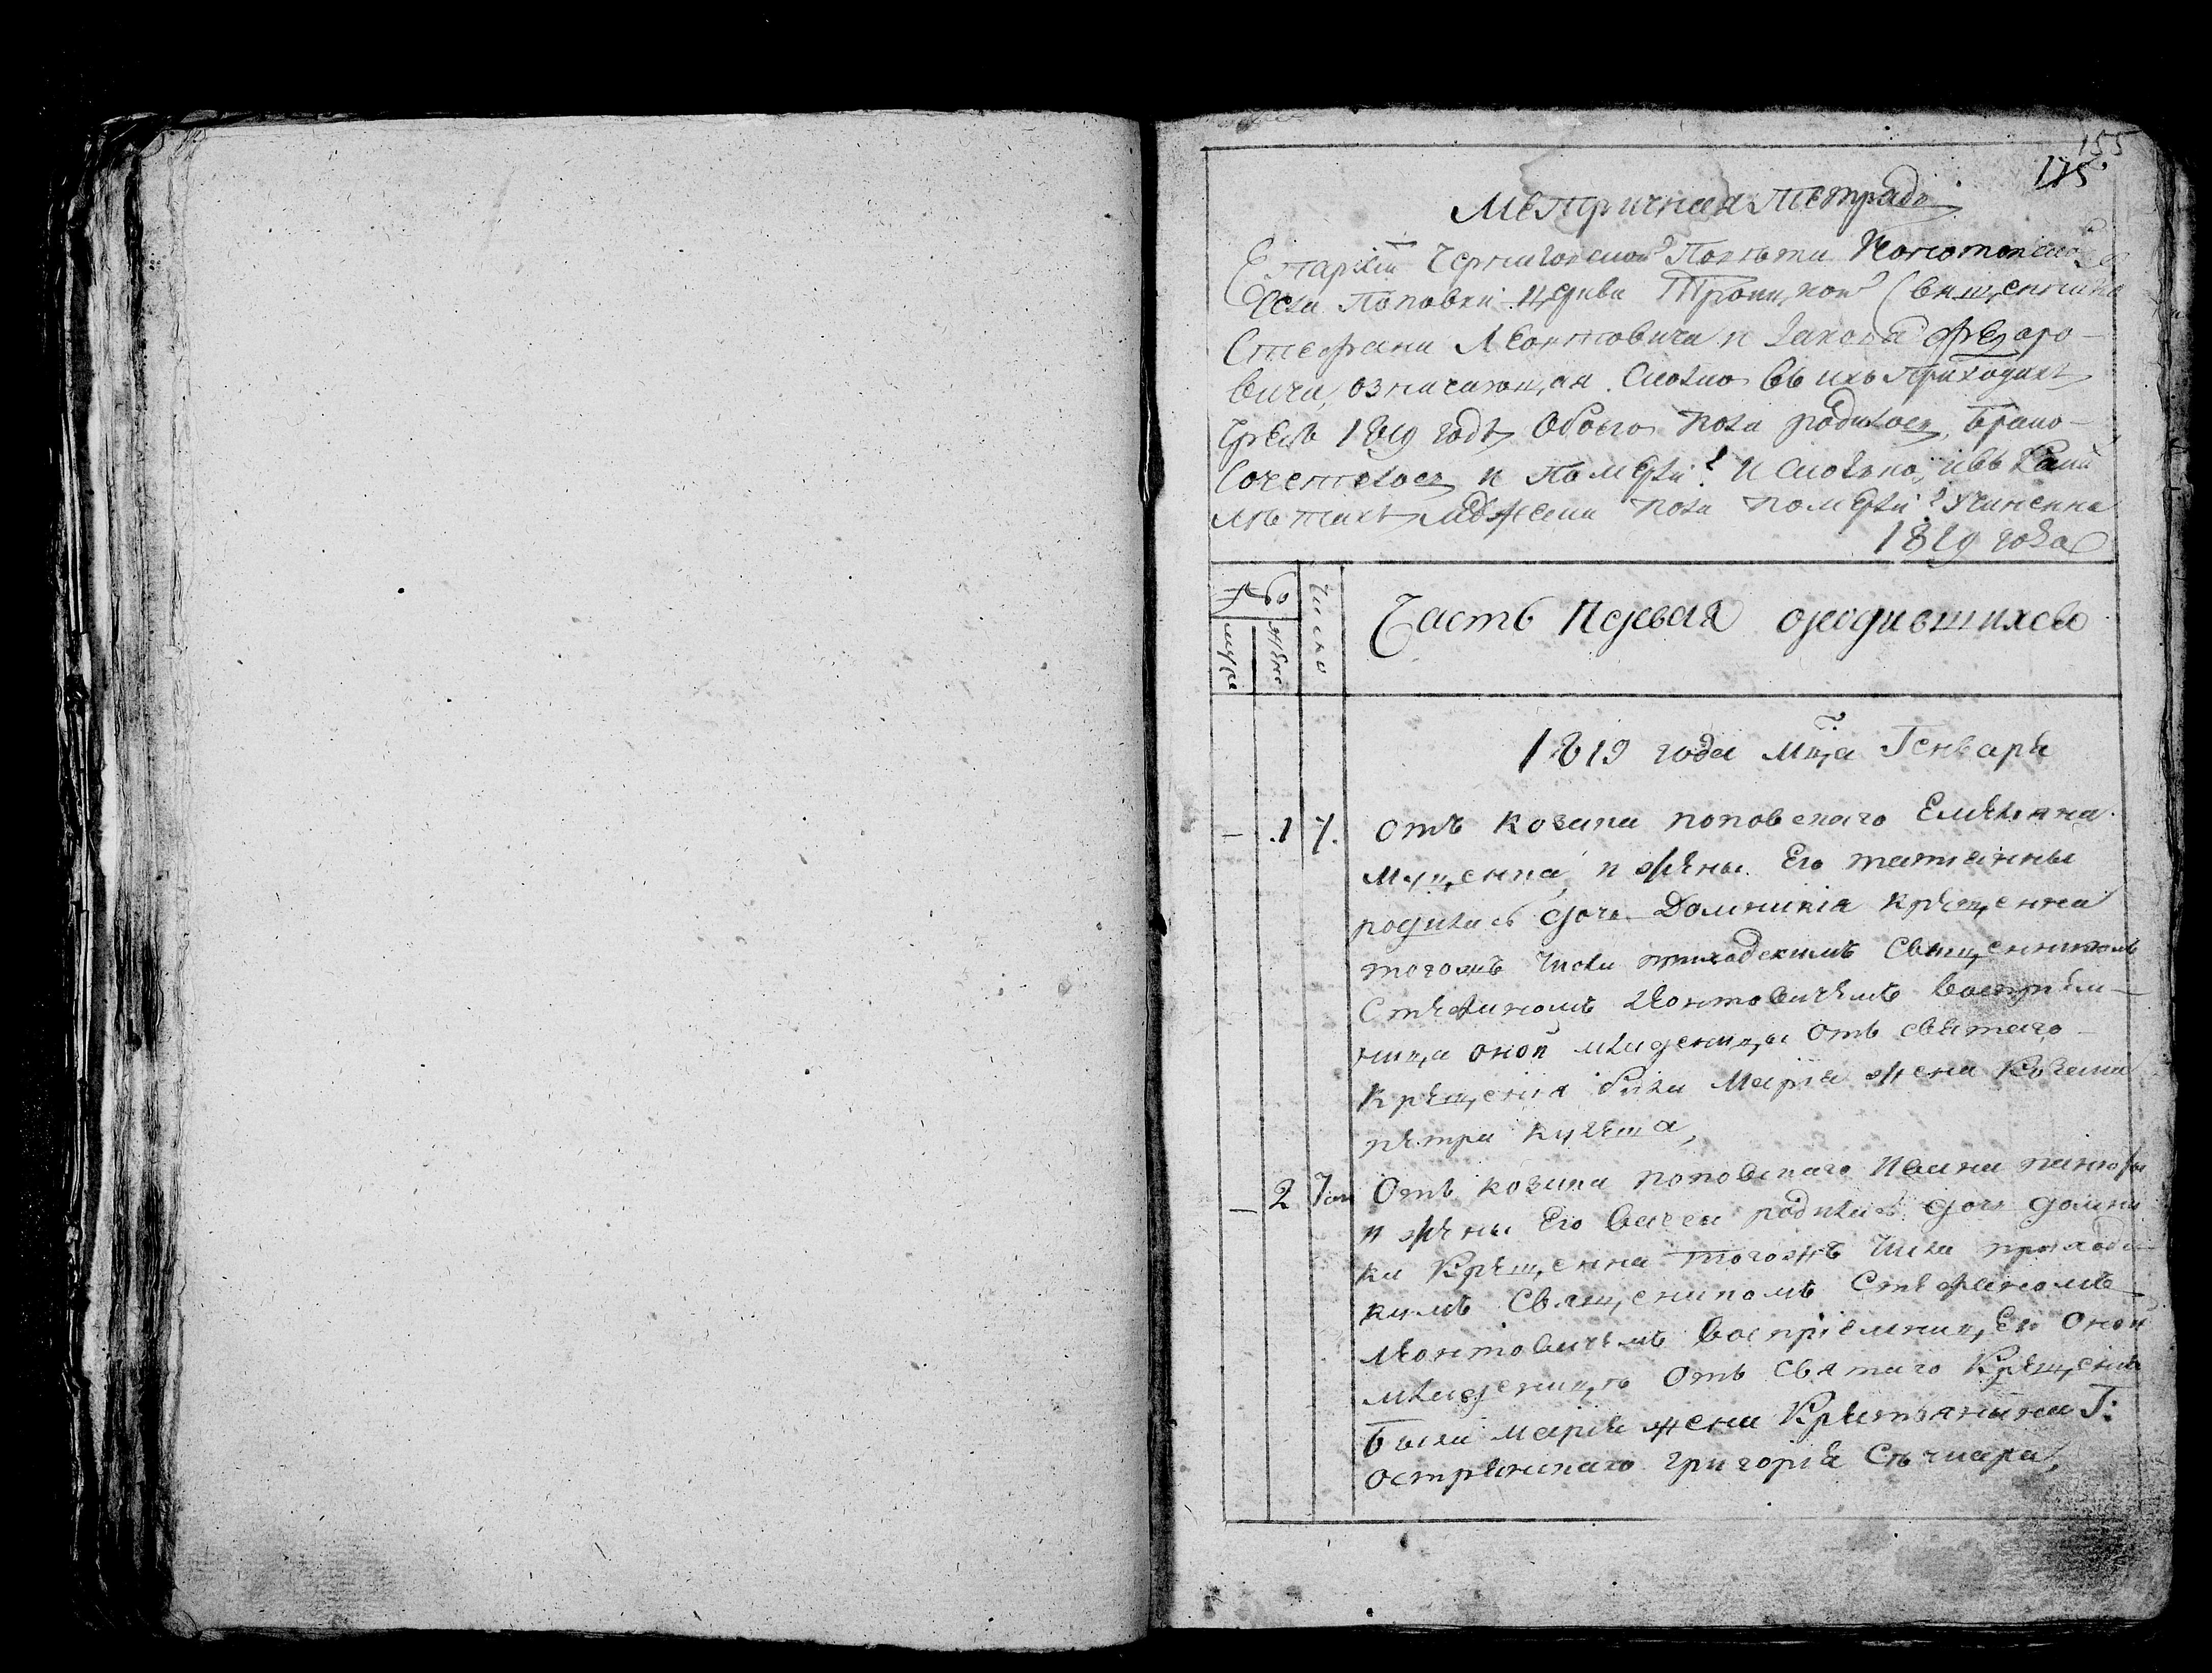 155
175
Метричная тетрадь
Епархіи Черниговской Повѣта Конотопского
Села Поповки церкви Троицкой Священника
Стефана Леонтовича и Іакова Федоро-
вича, означающая. Сколко въ ихъ Приходихъ
чрезъ 1819 годъ обоего пола родилось, брако-
сочеталось и померли? И сколько, и въ какихъ
лѣтахъ мужеска пола померли? Учиненна
1819 года
Число
муже
женс
Часть первая ородившихся
1819 года Мца Генваря
— 1 1. Отъ козака поповскаго Емельяна
Мущенка, и жены Его татіанны
родилась дочь Домникія крещенна
тогожъ числа приходскимъ Священникомъ
Стефаномъ Леонтовичемъ Воспріем-
ница оной младеницы отъ святаго
крещенія была Марія жена козака
петра кулеша,
— 2 Отъ козака поповскаго Ивана
и жены Его Вассы родилась дочь домни
ка Крещенна тогожъ числа приходс
кимъ Священикомъ Стефаномъ
Леонтовичемъ Воспріемницею оной
младеницы отъ Святаго Крещенія
была марія жена Крестьянина Г:
острянскаго григорія Сѣчкара,